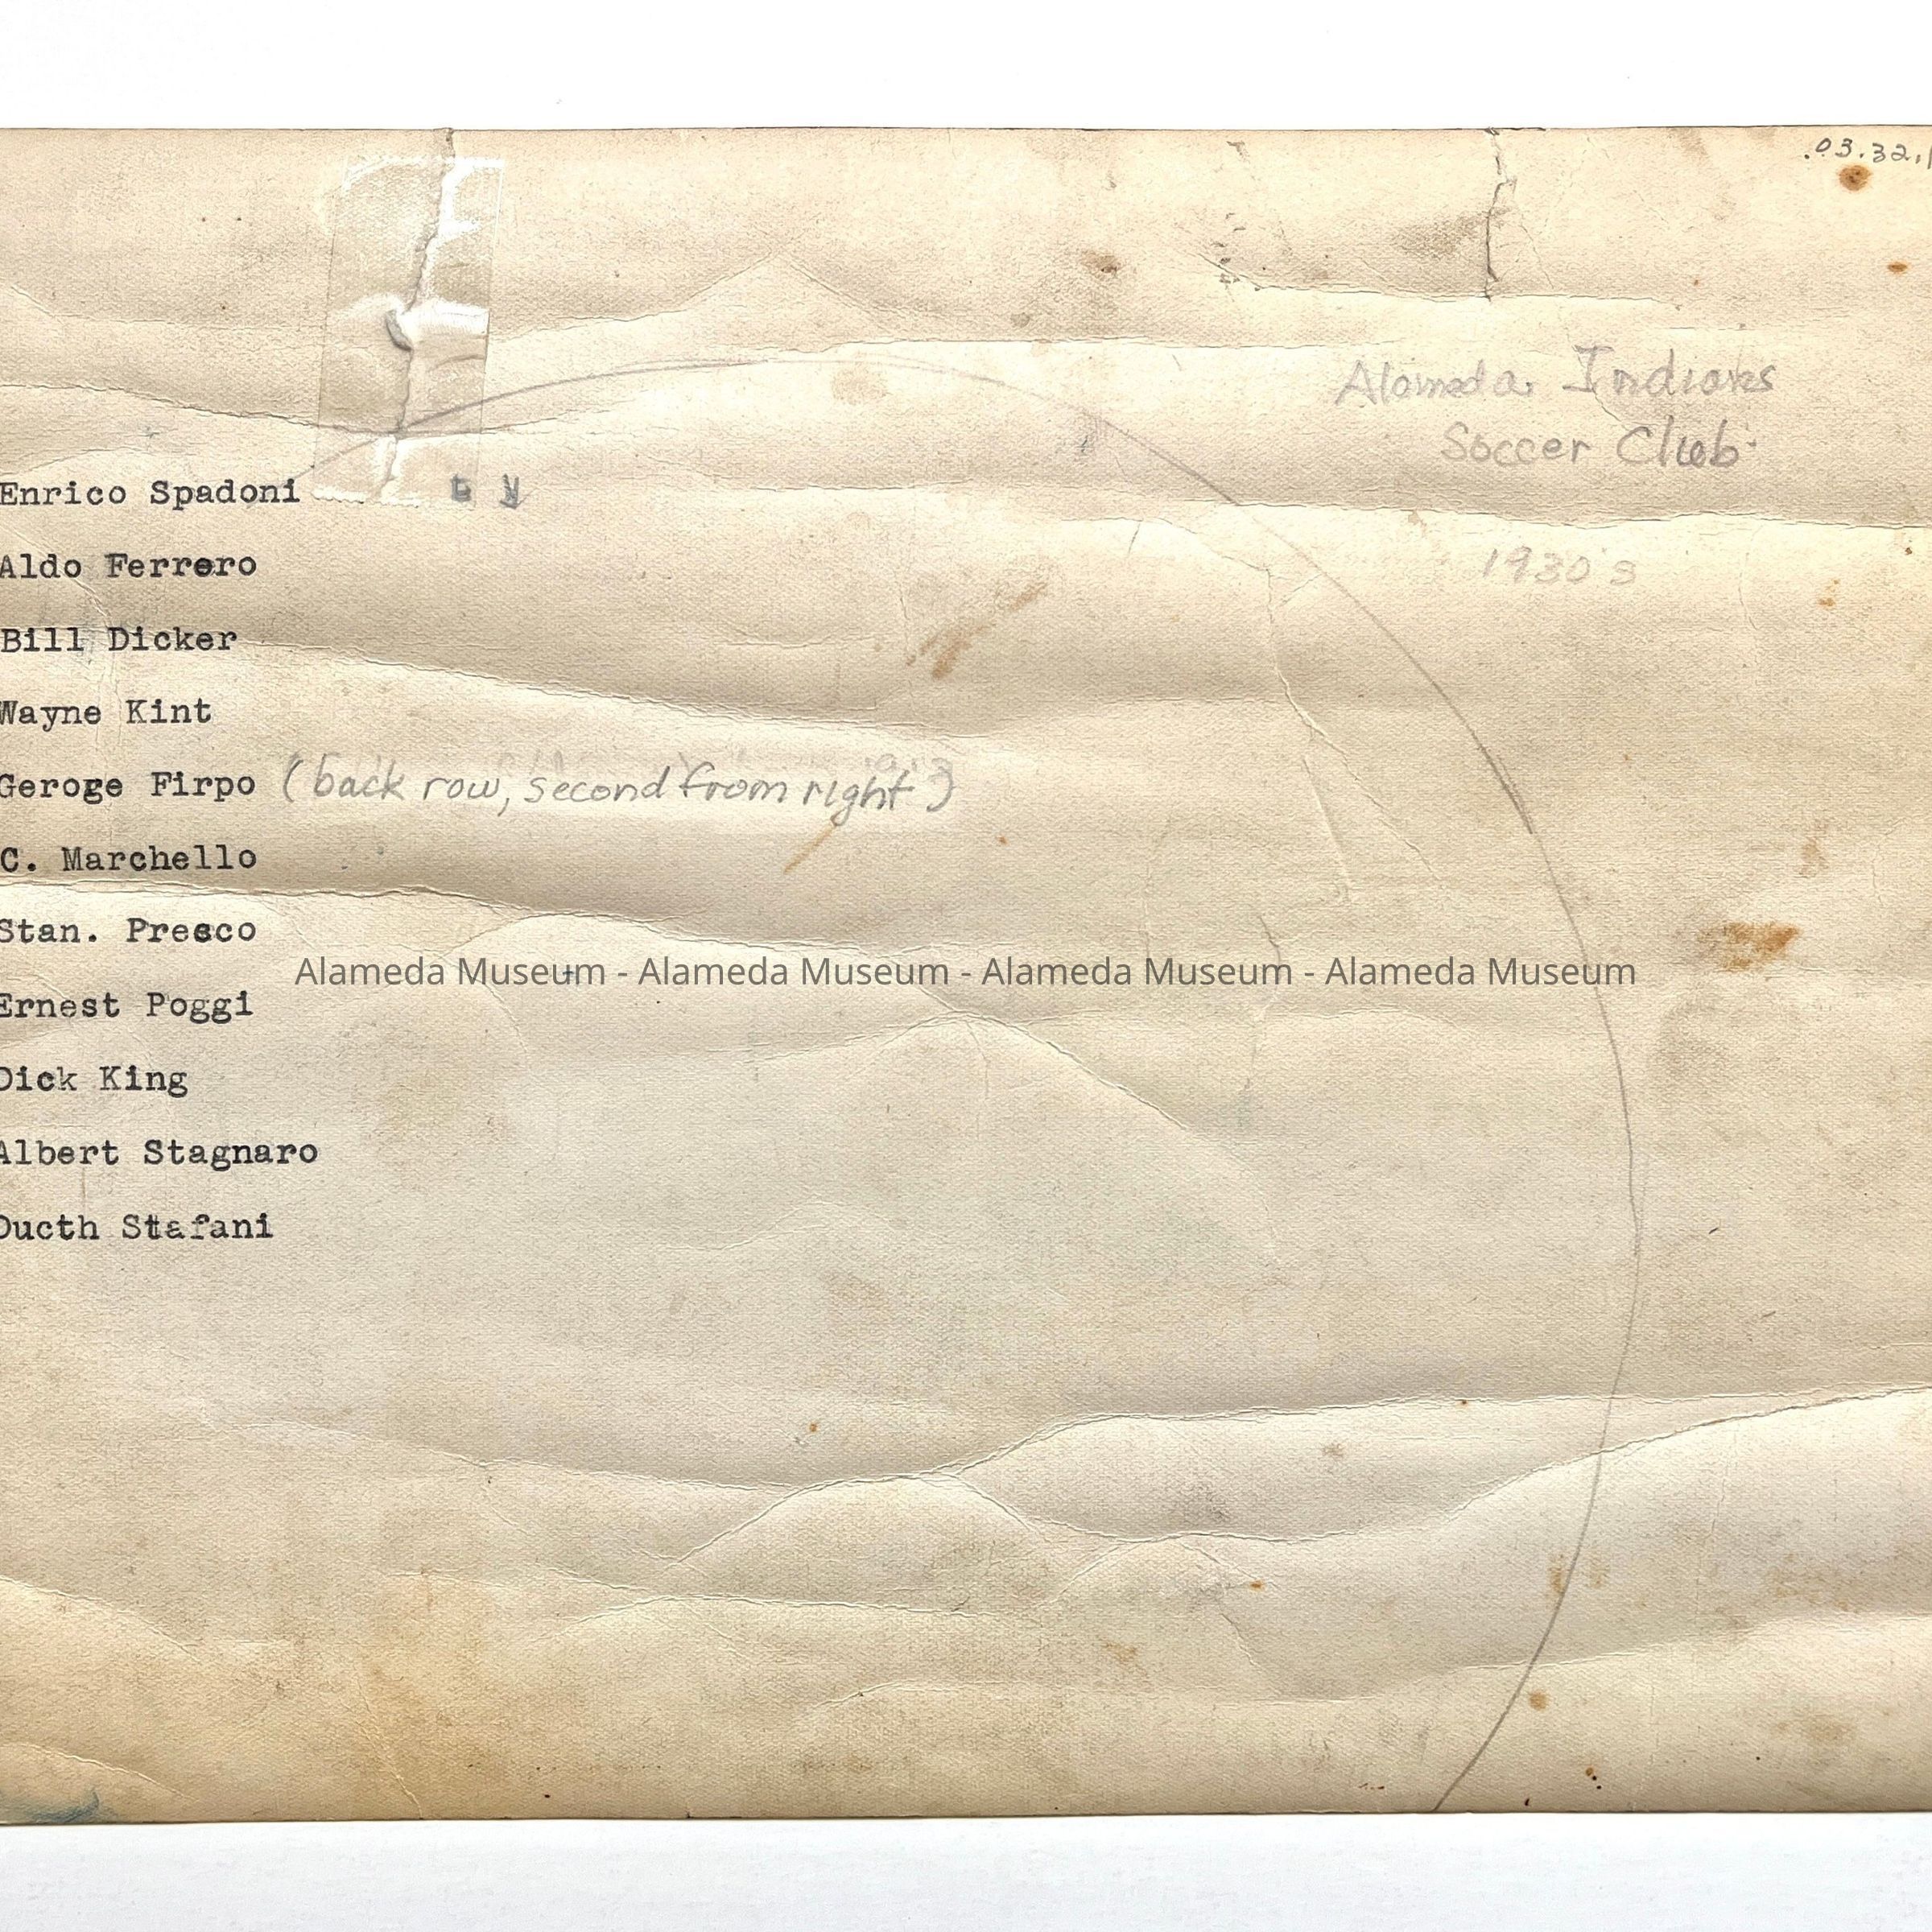 .03.32.1
Alameda Indians
Soccer Club
1930's
Enrico Spadoni
Aldo Ferrero
Bill Dicker
Wayne Kint
Geroge Firpo (back row, second from right)
C. Marchello
Stan. Presco
Alameda Museum - Alameda Museum - Alameda Museum - Alameda Museum
Ernest Poggi
Dick King
Albert Stagnaro
Ducth Stafani